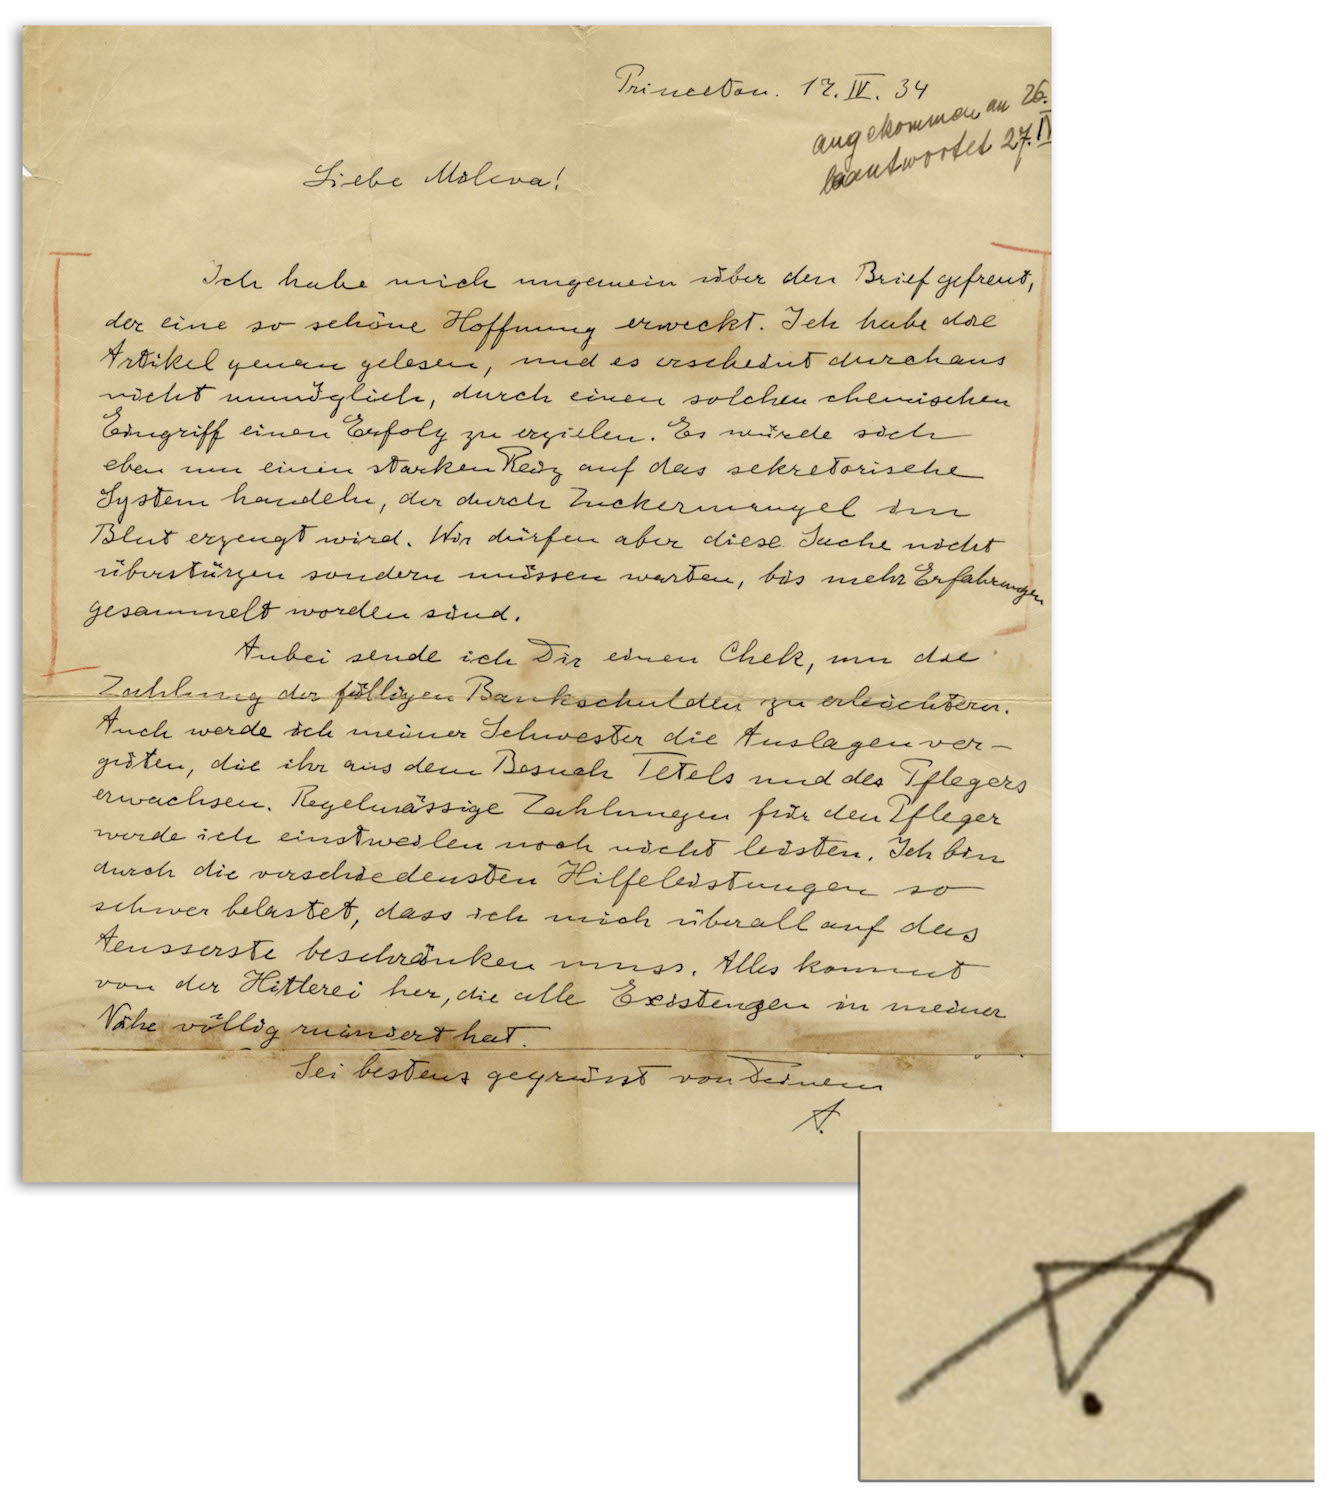 Princeton. 17. IV. 34
angekommen am 26.
beantwortet 27. IV
Liebe Mileva!
Ich habe mich ungemein über den Brief gefreut,
der eine so schöne Hoffnung erweckt. Ich habe die
Artikel genau gelesen, und es erscheint durchaus
nicht unmöglich, durch einen solchen chemischen
Eingriff einen Erfolg zu erzielen. Es würde sich
eben um einen starken Reiz auf das sekretorische
System handeln, der durch Zuckermangel im
Blut erzeugt wird. Wir dürfen aber diese Sache nicht
überstürzen sondern müssen warten, bis mehr Erfahrungen
gesammelt worden sind.
Anbei sende ich Dir einen Chek, um die
Zahlung der fälligen Bankschulden zu erleichtern.
Auch werde ich meiner Schwester die Auslagen ver-
güten, die ihr aus dem Besuch Tetels und des Pflegers
erwachsen. Regelmässige Zahlungen für den Pfleger
werde ich einstweilen noch nicht leisten. Ich bin
durch die verschiedensten Hilfeleistungen so
schwer belastet, dass ich mich überall auf das
Aeusserste beschränken muss. Alles kommt
von der Hitlerei her, die alle Existenzen in meiner
Nähe völlig ruiniert hat.
Sei bestens gegrüsst von Deinem
A.
A.